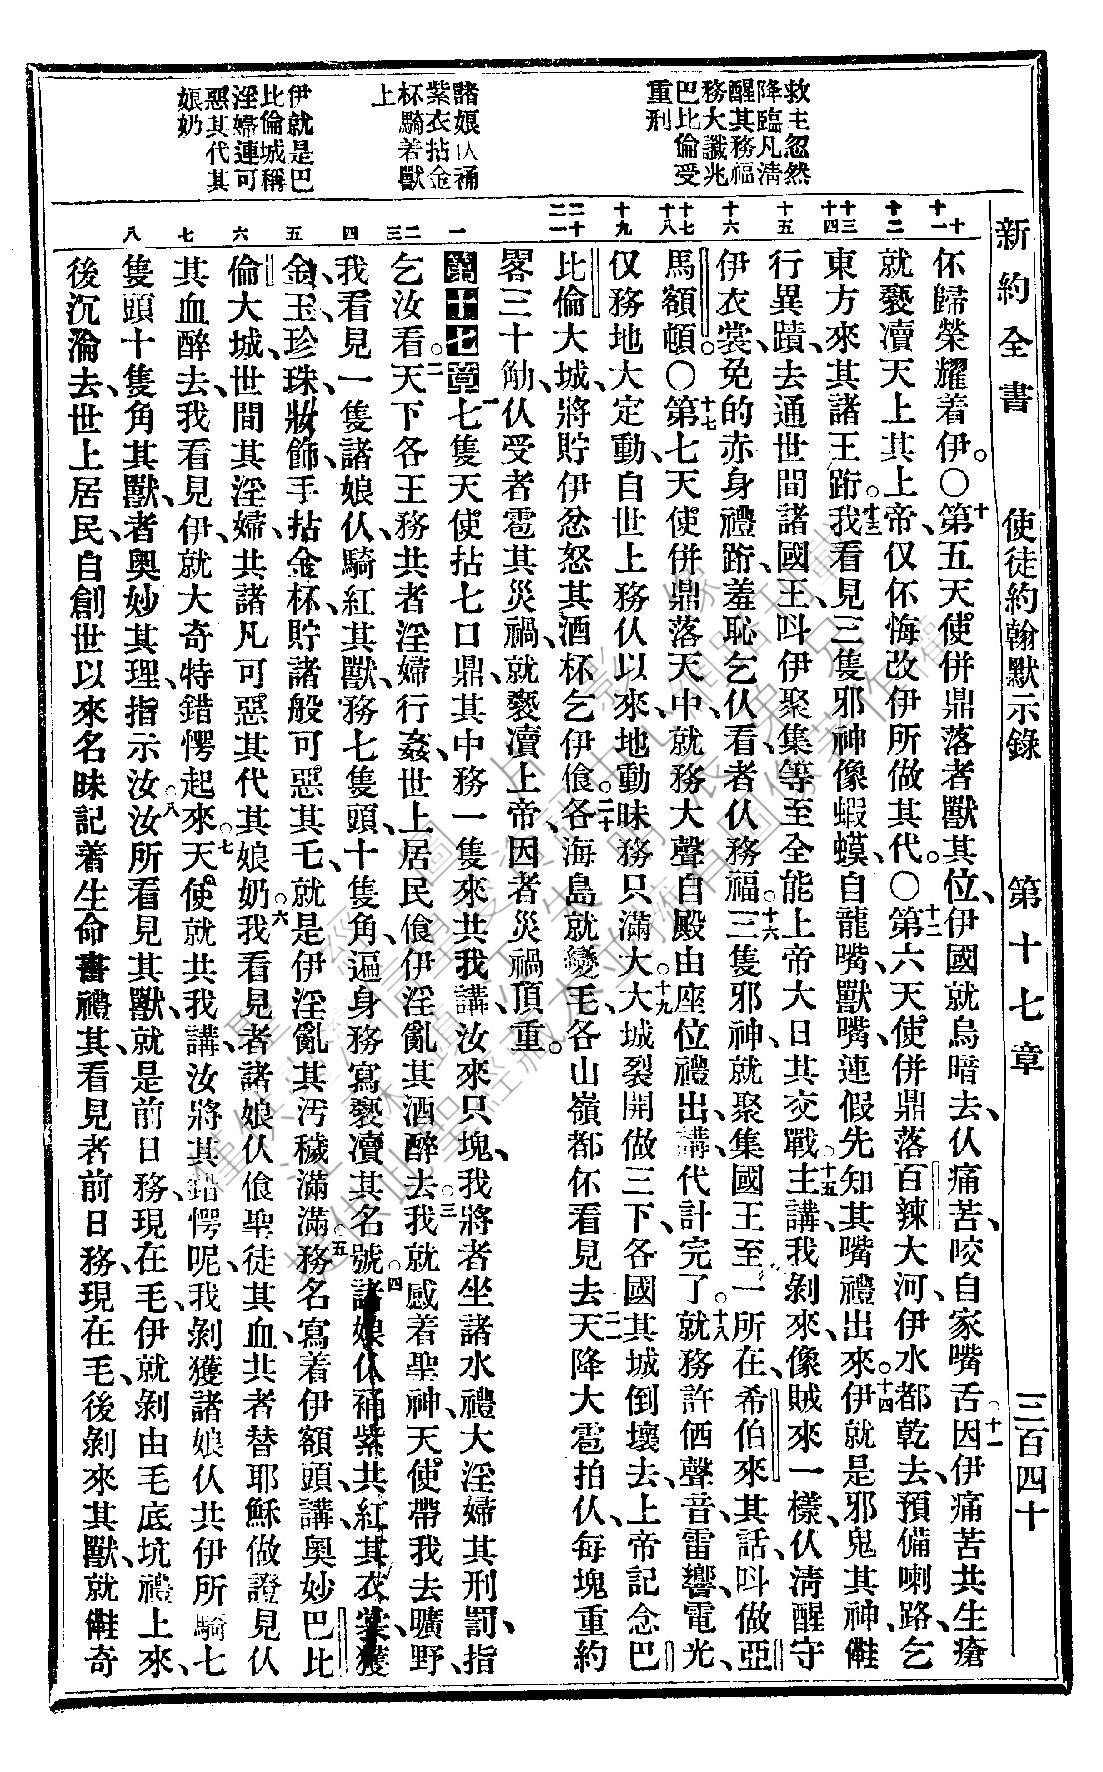 新約全書 使徒約翰默示錄 第十七章 三百四十
救主忽然
降臨凡淸
醒其務福
務大讖兆
巴比倫受
重刑
諸娘仈𧚔
紫衣拈金
杯騎着獸
上
伊就是巴
比倫城稱
淫婦連可
惡其代其
娘奶
十
十一
十二
十三
十四
十五
十六
十七
十八
十九
二十
二一
一
二
三
四
五
六
七
八
伓歸榮耀着伊。〇十第五天使併鼎落者獸其位、伊國就烏暗去、仈痛苦、咬自家嘴舌。十一因伊痛苦共生瘡
就褻瀆天上其上帝、仅伓悔改伊所做其代。〇十二第六天使併鼎落百辣大河、伊水都乾去、預備喇路、乞
東方來其諸王跡。十三我看見三隻邪神像蝦蟆、自龍嘴、獸嘴、連假先知其嘴禮出來。十四伊就是邪鬼其神、㑚
行異蹟、去通世間諸國王、呌伊聚集等至全能上帝大日其交戰。十五主講、我剝來、像賊來一樣、仈淸醒守
伊衣裳、免的赤身禮跡、羞恥乞仈看、者仈務福。十六三隻邪神、就聚集國王至一所在、希伯來其話、呌做亞
馬額頓。〇十七第七天使併鼎落天中、就務大聲自殿由座位禮出講、代計完了。十八就務許価聲音、雷響、電光、
仅務地大定動、自世上務仈以來、地動昧務只滿大。十九大城裂開做三下、各國其城倒壞去、上帝記念巴
比倫大城、將貯伊忿怒其酒杯乞伊飡。二十各海島就變毛、各山嶺都伓看見去。二一天降大雹拍仈、每塊重約
畧三十觔、仈受者雹其災禍、就褻瀆上帝、因者災禍頂重。
第十七章 一七隻天使拈七口鼎、其中務一隻來共我講、汝來只塊、我將者坐諸水禮大淫婦其刑罰、指
乞汝看。二天下各王、務共者淫婦行姦、世上居民飡伊淫亂其酒醉去。三我就感着聖神、天使帶我去曠野、
我看見一隻諸娘仈騎紅其獸、務七隻頭、十隻角、遍身務寫褻瀆其名號。四諸娘仈𧚔紫共紅其衣裳、獲
金、玉、珍珠、妝飾、手拈金杯、貯諸般可惡其乇、就是伊淫亂其汚穢滿滿。五務名寫着伊額頭講、奧妙巴比
倫大城、世間其淫婦、共諸凡可惡其代其娘奶。六我看見者諸娘仈飡聖徒其血、共者替耶穌做證見仈
其血醉去、我看見伊、就大奇特錯愕起來。七天使就共我講、汝將其錯愕呢、我剝獲諸娘仈共伊所騎七
隻頭十隻角其獸、者奧妙其理、指示汝。八汝所看見其獸、就是前日務、現在毛、伊就剝由毛底坑禮上來、
後沉淪去、世上居民、自創世以來名昧記着生命書禮其、看見者前日務、現在毛、後剝來其獸、就㑚奇